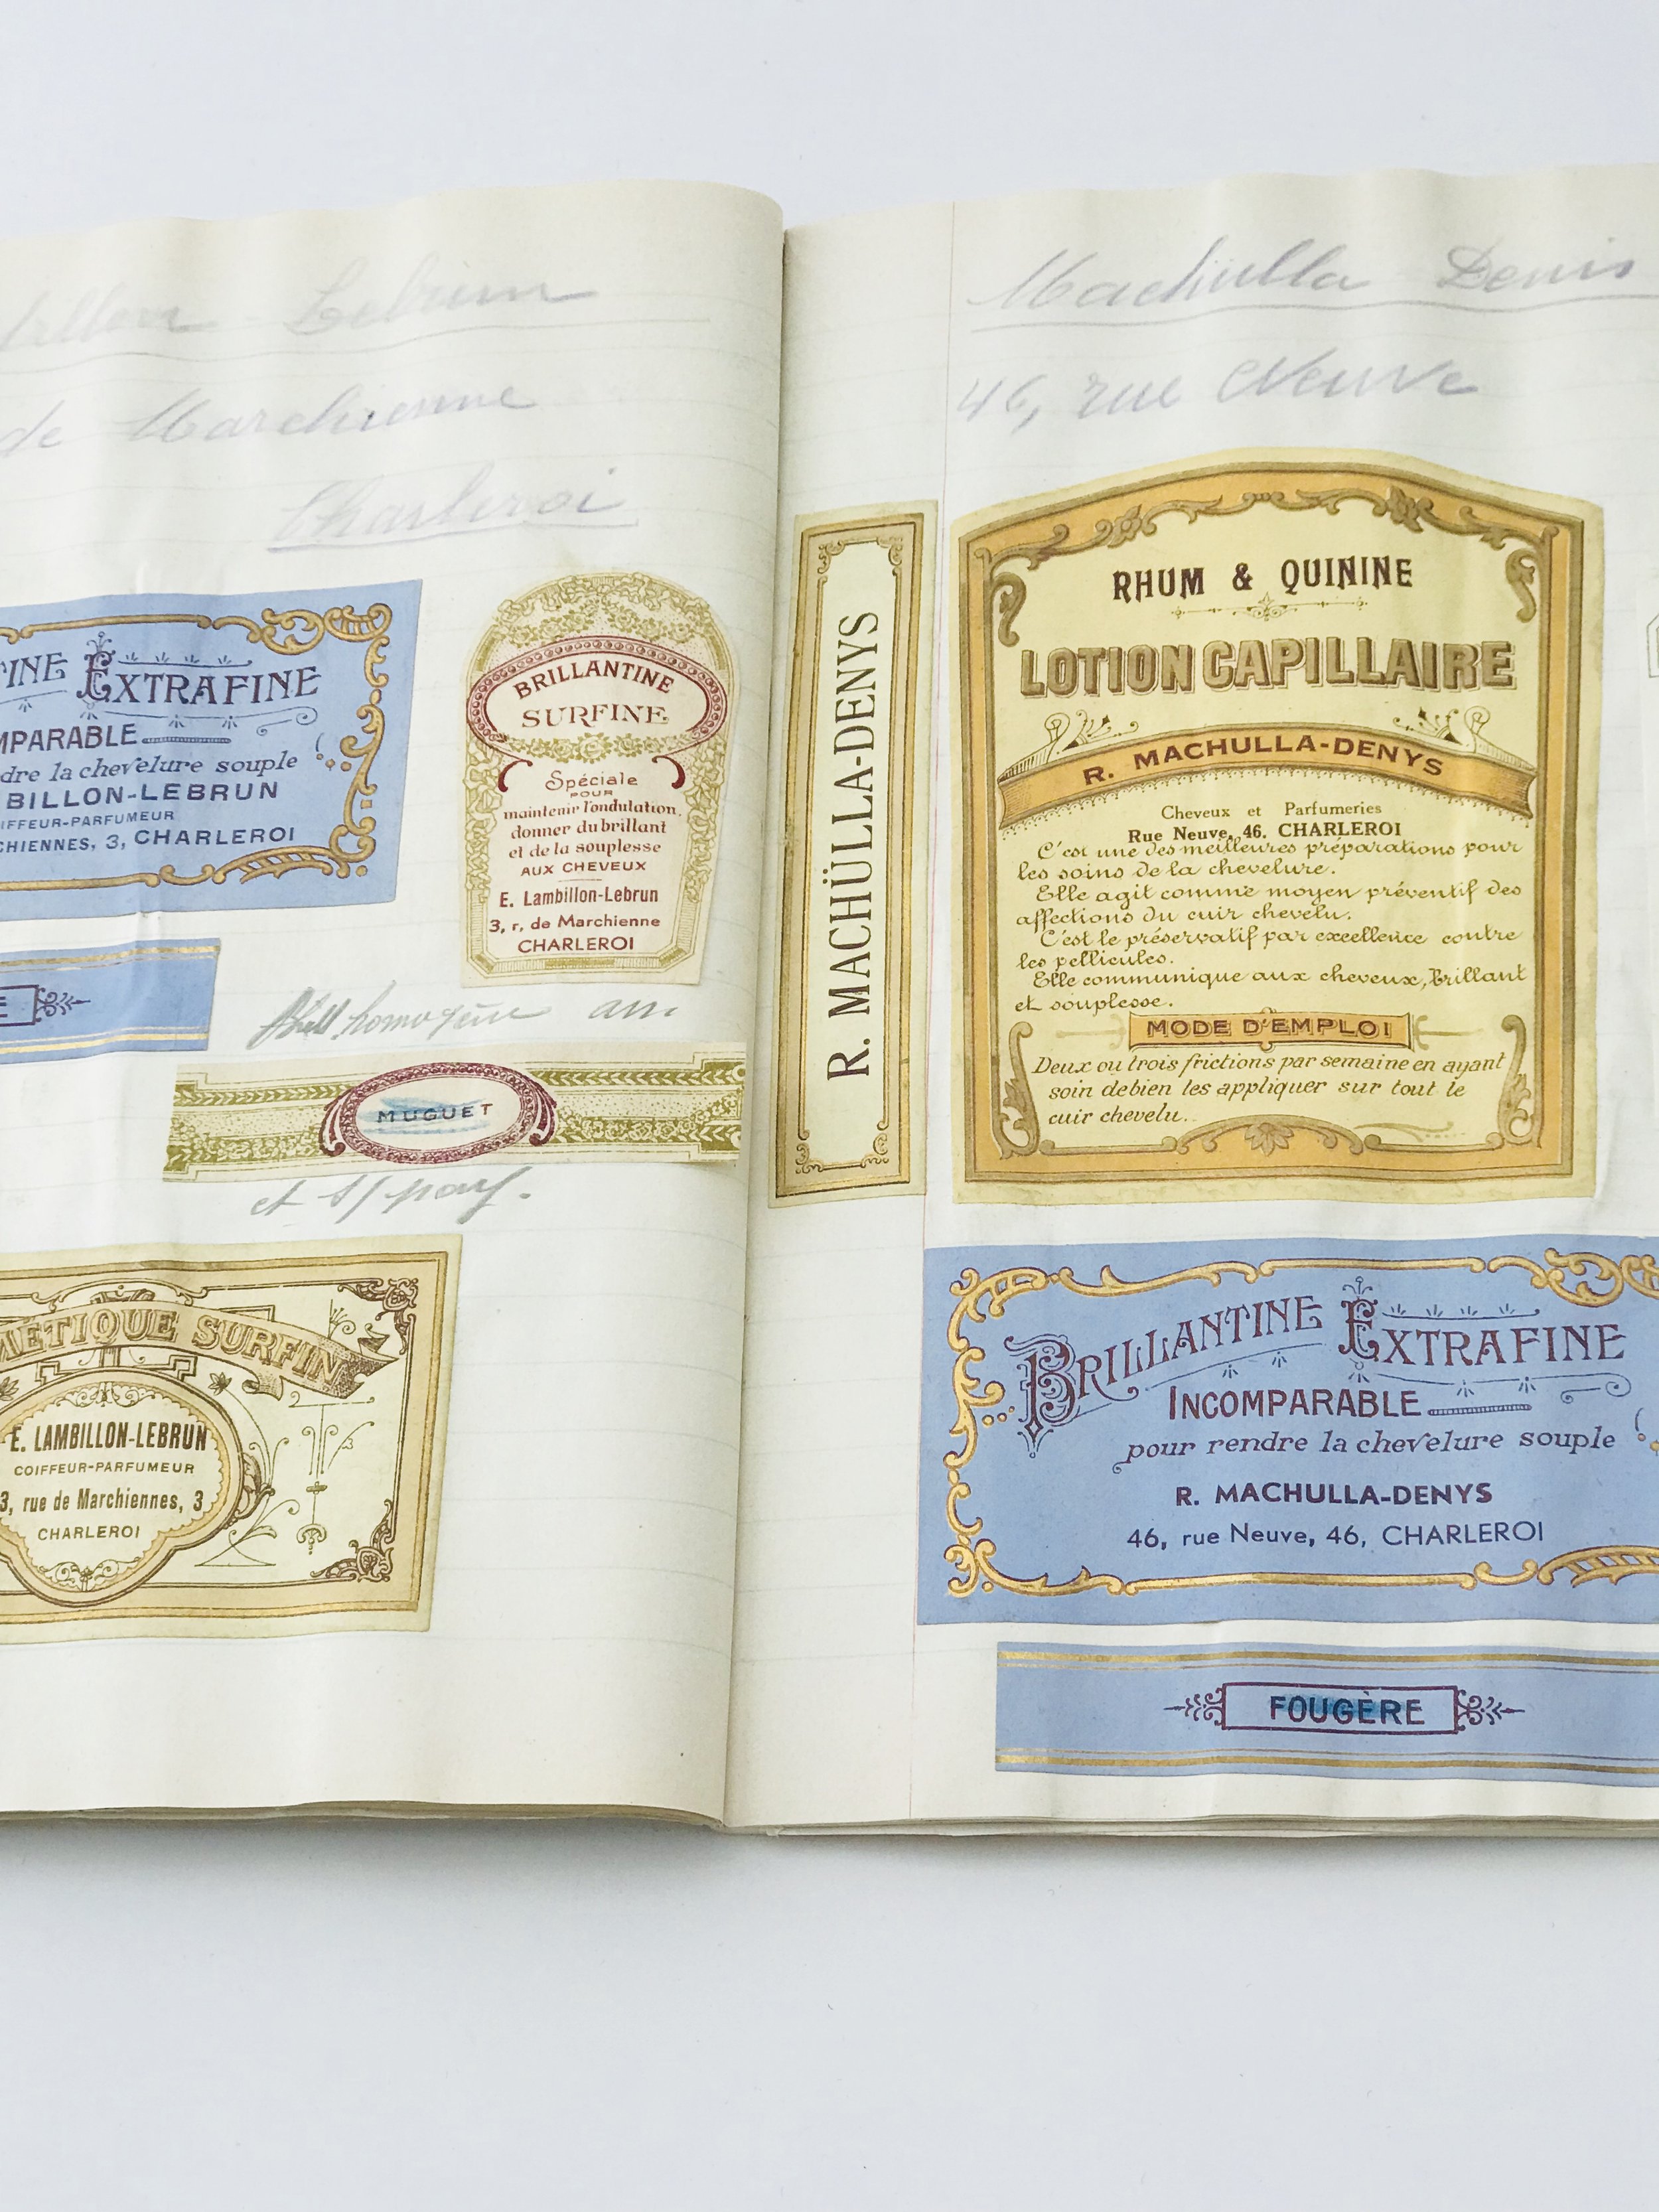 Lebrun
de Marchienne
Charleroi
INE EXTRAFINE
MPARABLE
dre la chevelure souple
BILLON-LEBRUN
IFFEUR-PARFUMEUR
CHIENNES, 3, CHARLEROI
E
BRILLANTINE
SURFINE
Spéciale
POUR
maintenir l'ondulation,
donner du brillant
et de la souplesse
AUX CHEVEUX
E. Lambillon-Lebrun
3, r, de Marchienne
CHARLEROI
homogène
MUGUET
et
MÉTIQUE SURFIN
E. LAMBILLON-LEBRUN
COIFFEUR-PARFUMEUR
3, rue de Marchiennes, 3
CHARLEROI
Machulla Denis
46, rue Neuve
R. MACHÜLLA-DENYS
RHUM & QUININE
LOTION CAPILLAIRE
R. MACHULLA-DENYS
Cheveux et Parfumeries
Rue Neuve, 46. CHARLEROI
C'est une des meilleures préparations pour
les soins de la chevelure.
Elle agit comme moyen préventif des
affections du cuir chevelu.
C'est le préservatif par excellence contre
les pellicules.
Elle communique aux cheveux, Brillant
et souplesse.
MODE D'EMPLOI
Deux ou trois frictions par semaine en ayant
soin de bien les appliquer sur tout le
cuir chevelu.
BRILLANTINE EXTRAFINE
INCOMPARABLE
pour rendre la chevelure souple
R. MACHULLA-DENYS
46, rue Neuve, 46, CHARLEROI
FOUGÈRE